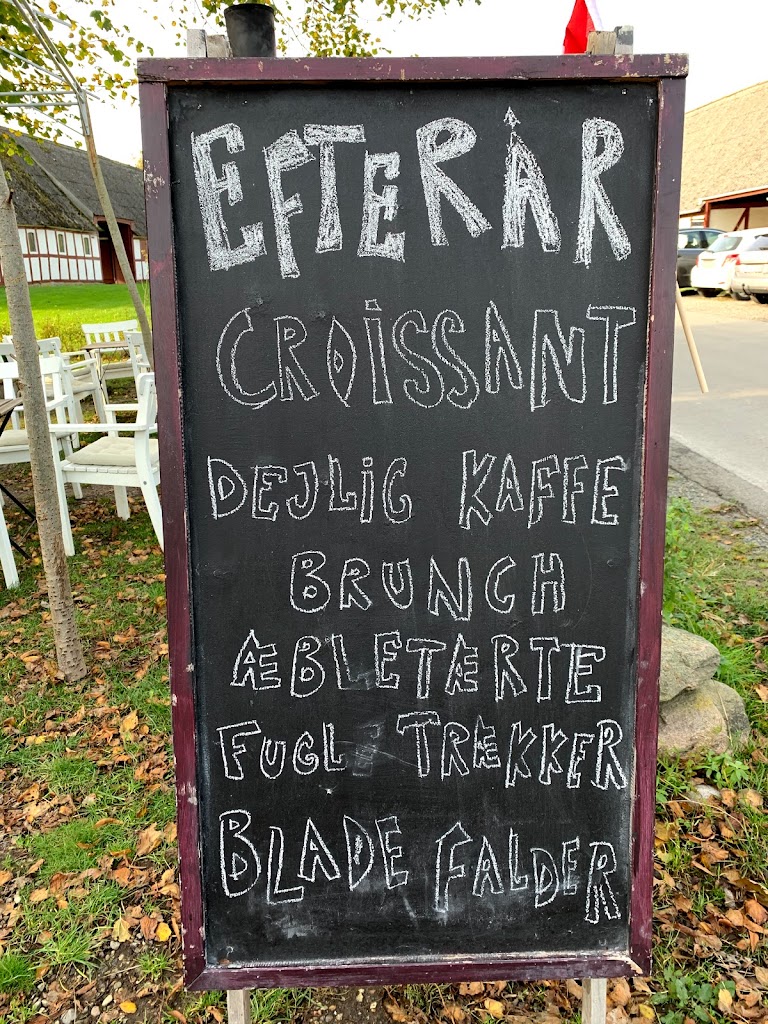 EFTERÅR
CROISSANT
DEJLIG KAFFE
BRUNCH
ÆBLETÆRTE
FUGLE TRÆKKER
BLADE FALDER